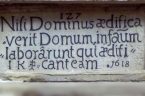 127
Nisi Dominus ædifica
verit Domum, in faum
laborarunt qui ædifi
cant eam 1618